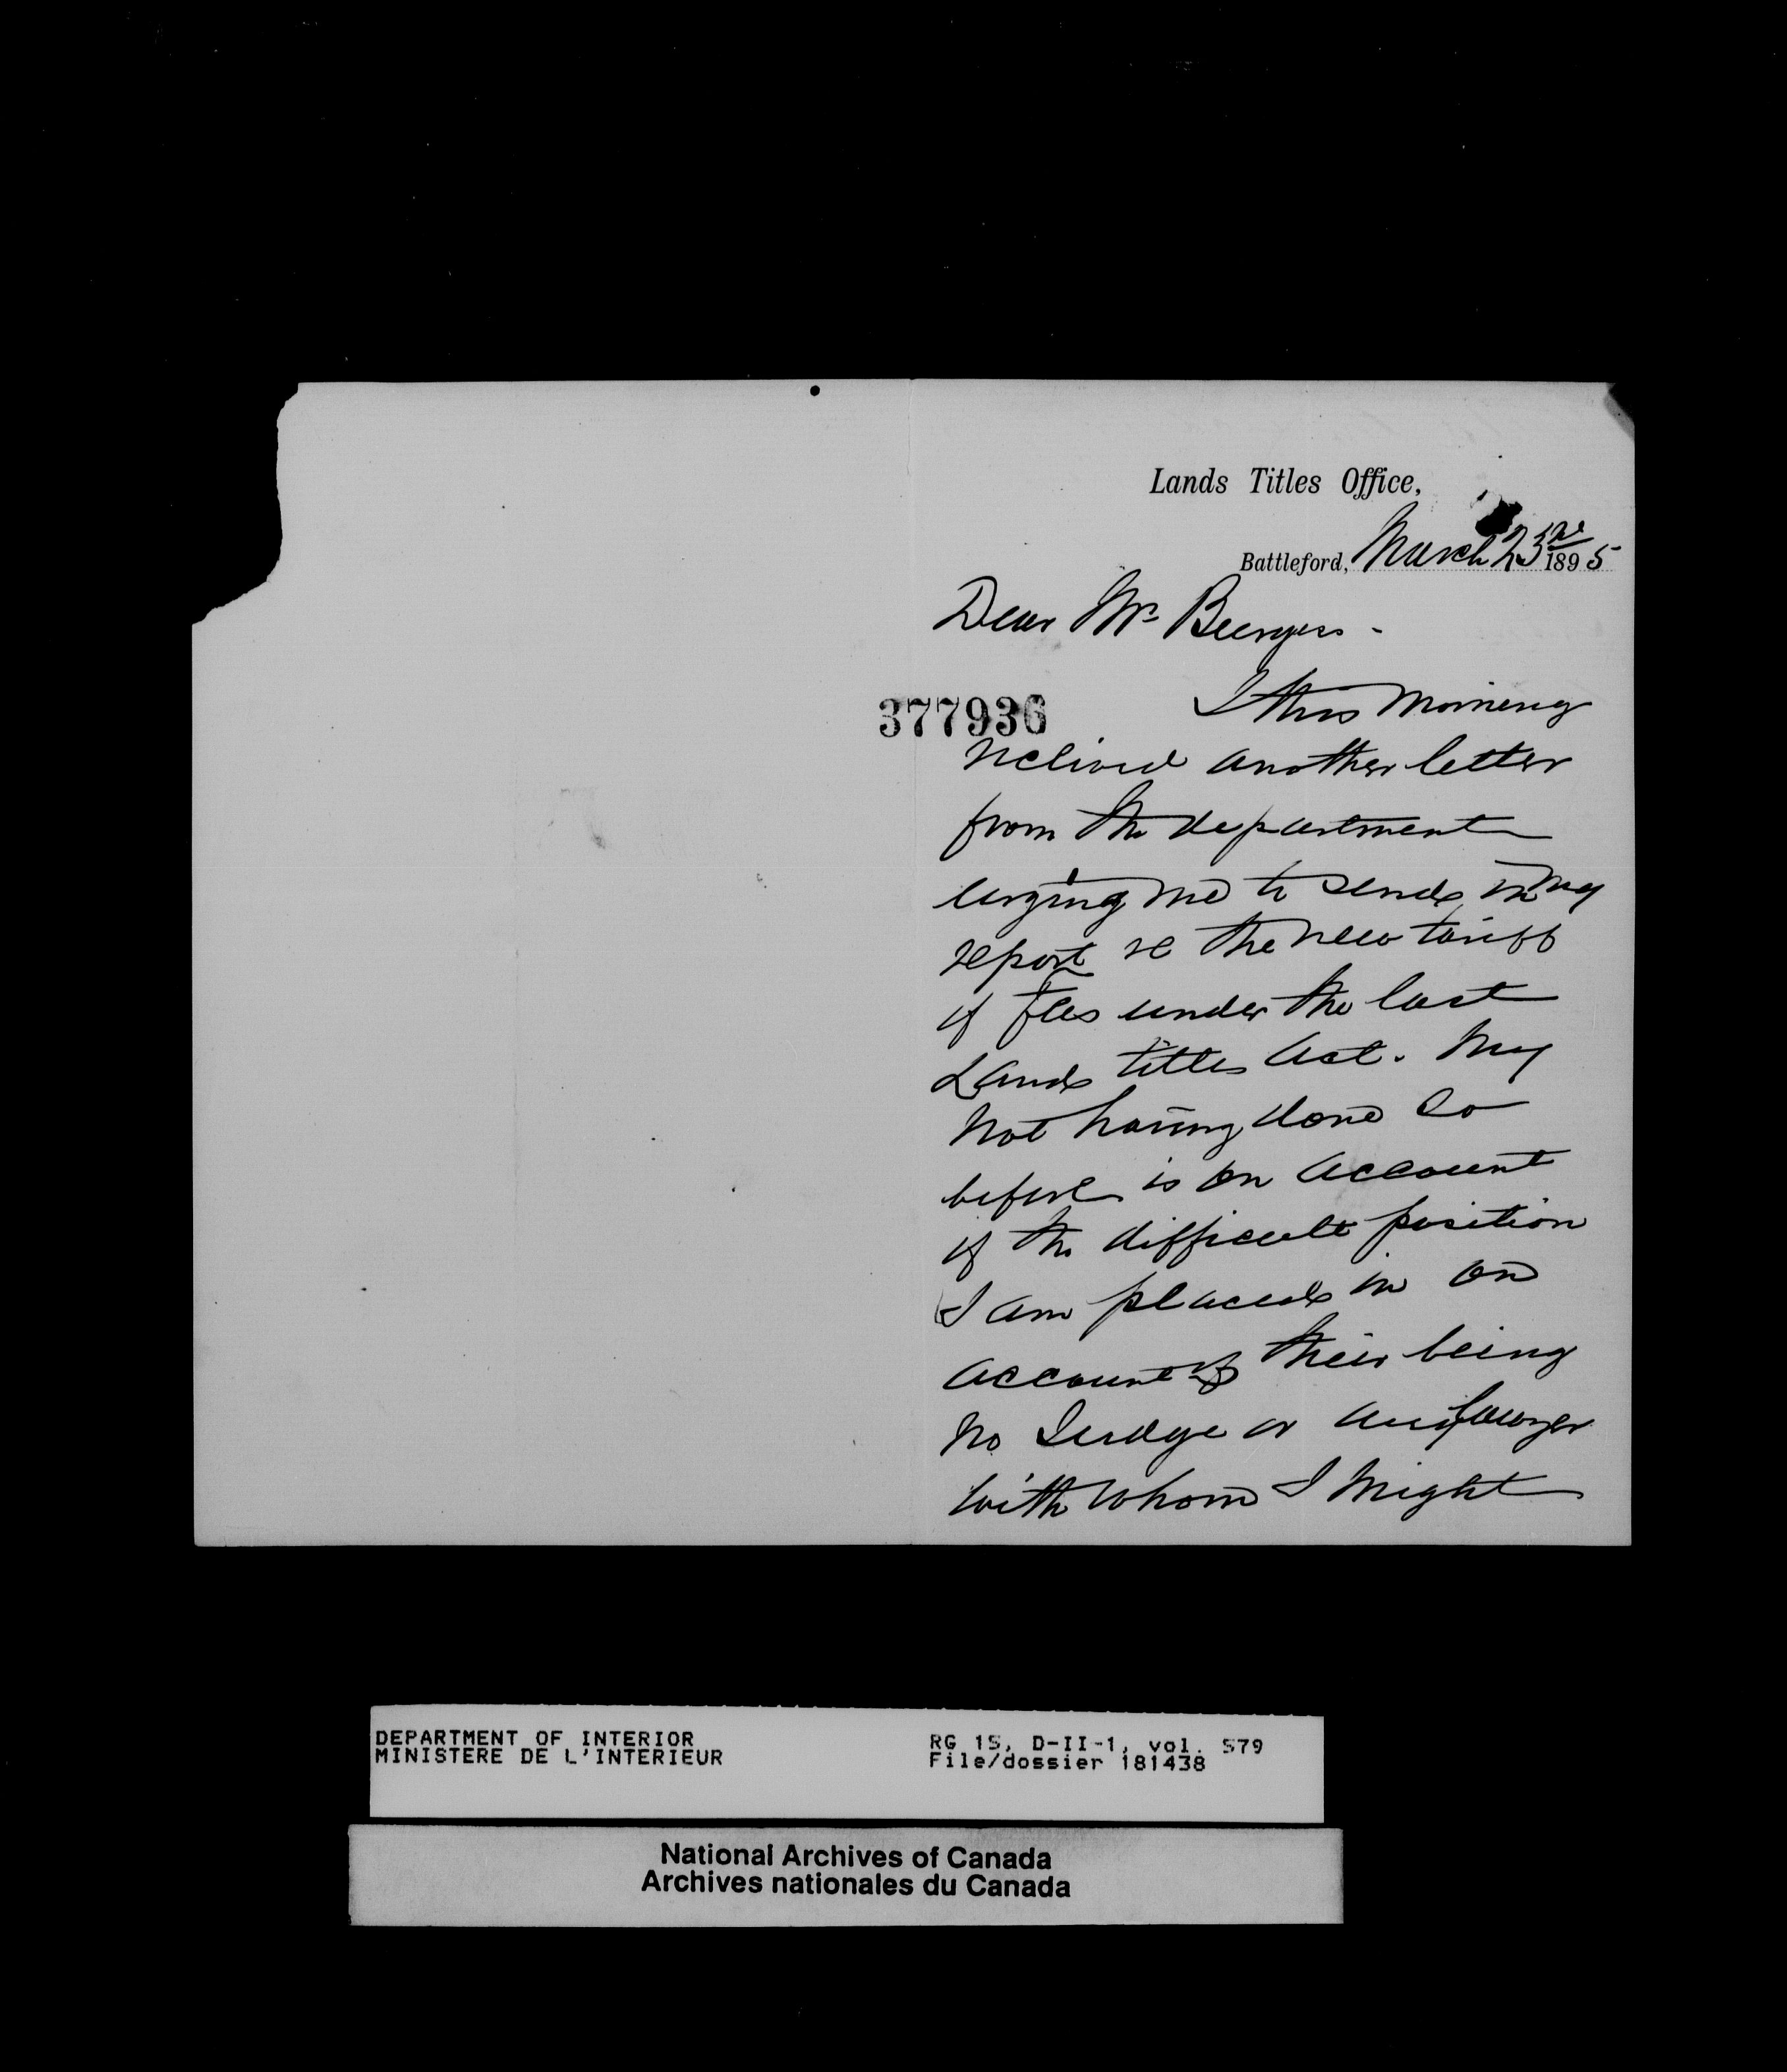 Lands Titles Office,
Battleford, March 23rd 1895
Dear Mr Burgess -
I this morning
377936
recieved another letter
from the department
urging me to send in my
report re the new tariff
of fees under the last
Lands titles Act. My
not having done so
before is on account
of the difficult position
I am placed in on
account of their being
no Judge or any lawyer
with whom I might
DEPARTMENT OF INTERIOR
MINISTERE DE L'INTERIEUR
RG 15, D-II-1, vol. 579
File/dossier 181438
National Archives of Canada
Archives nationales du Canada